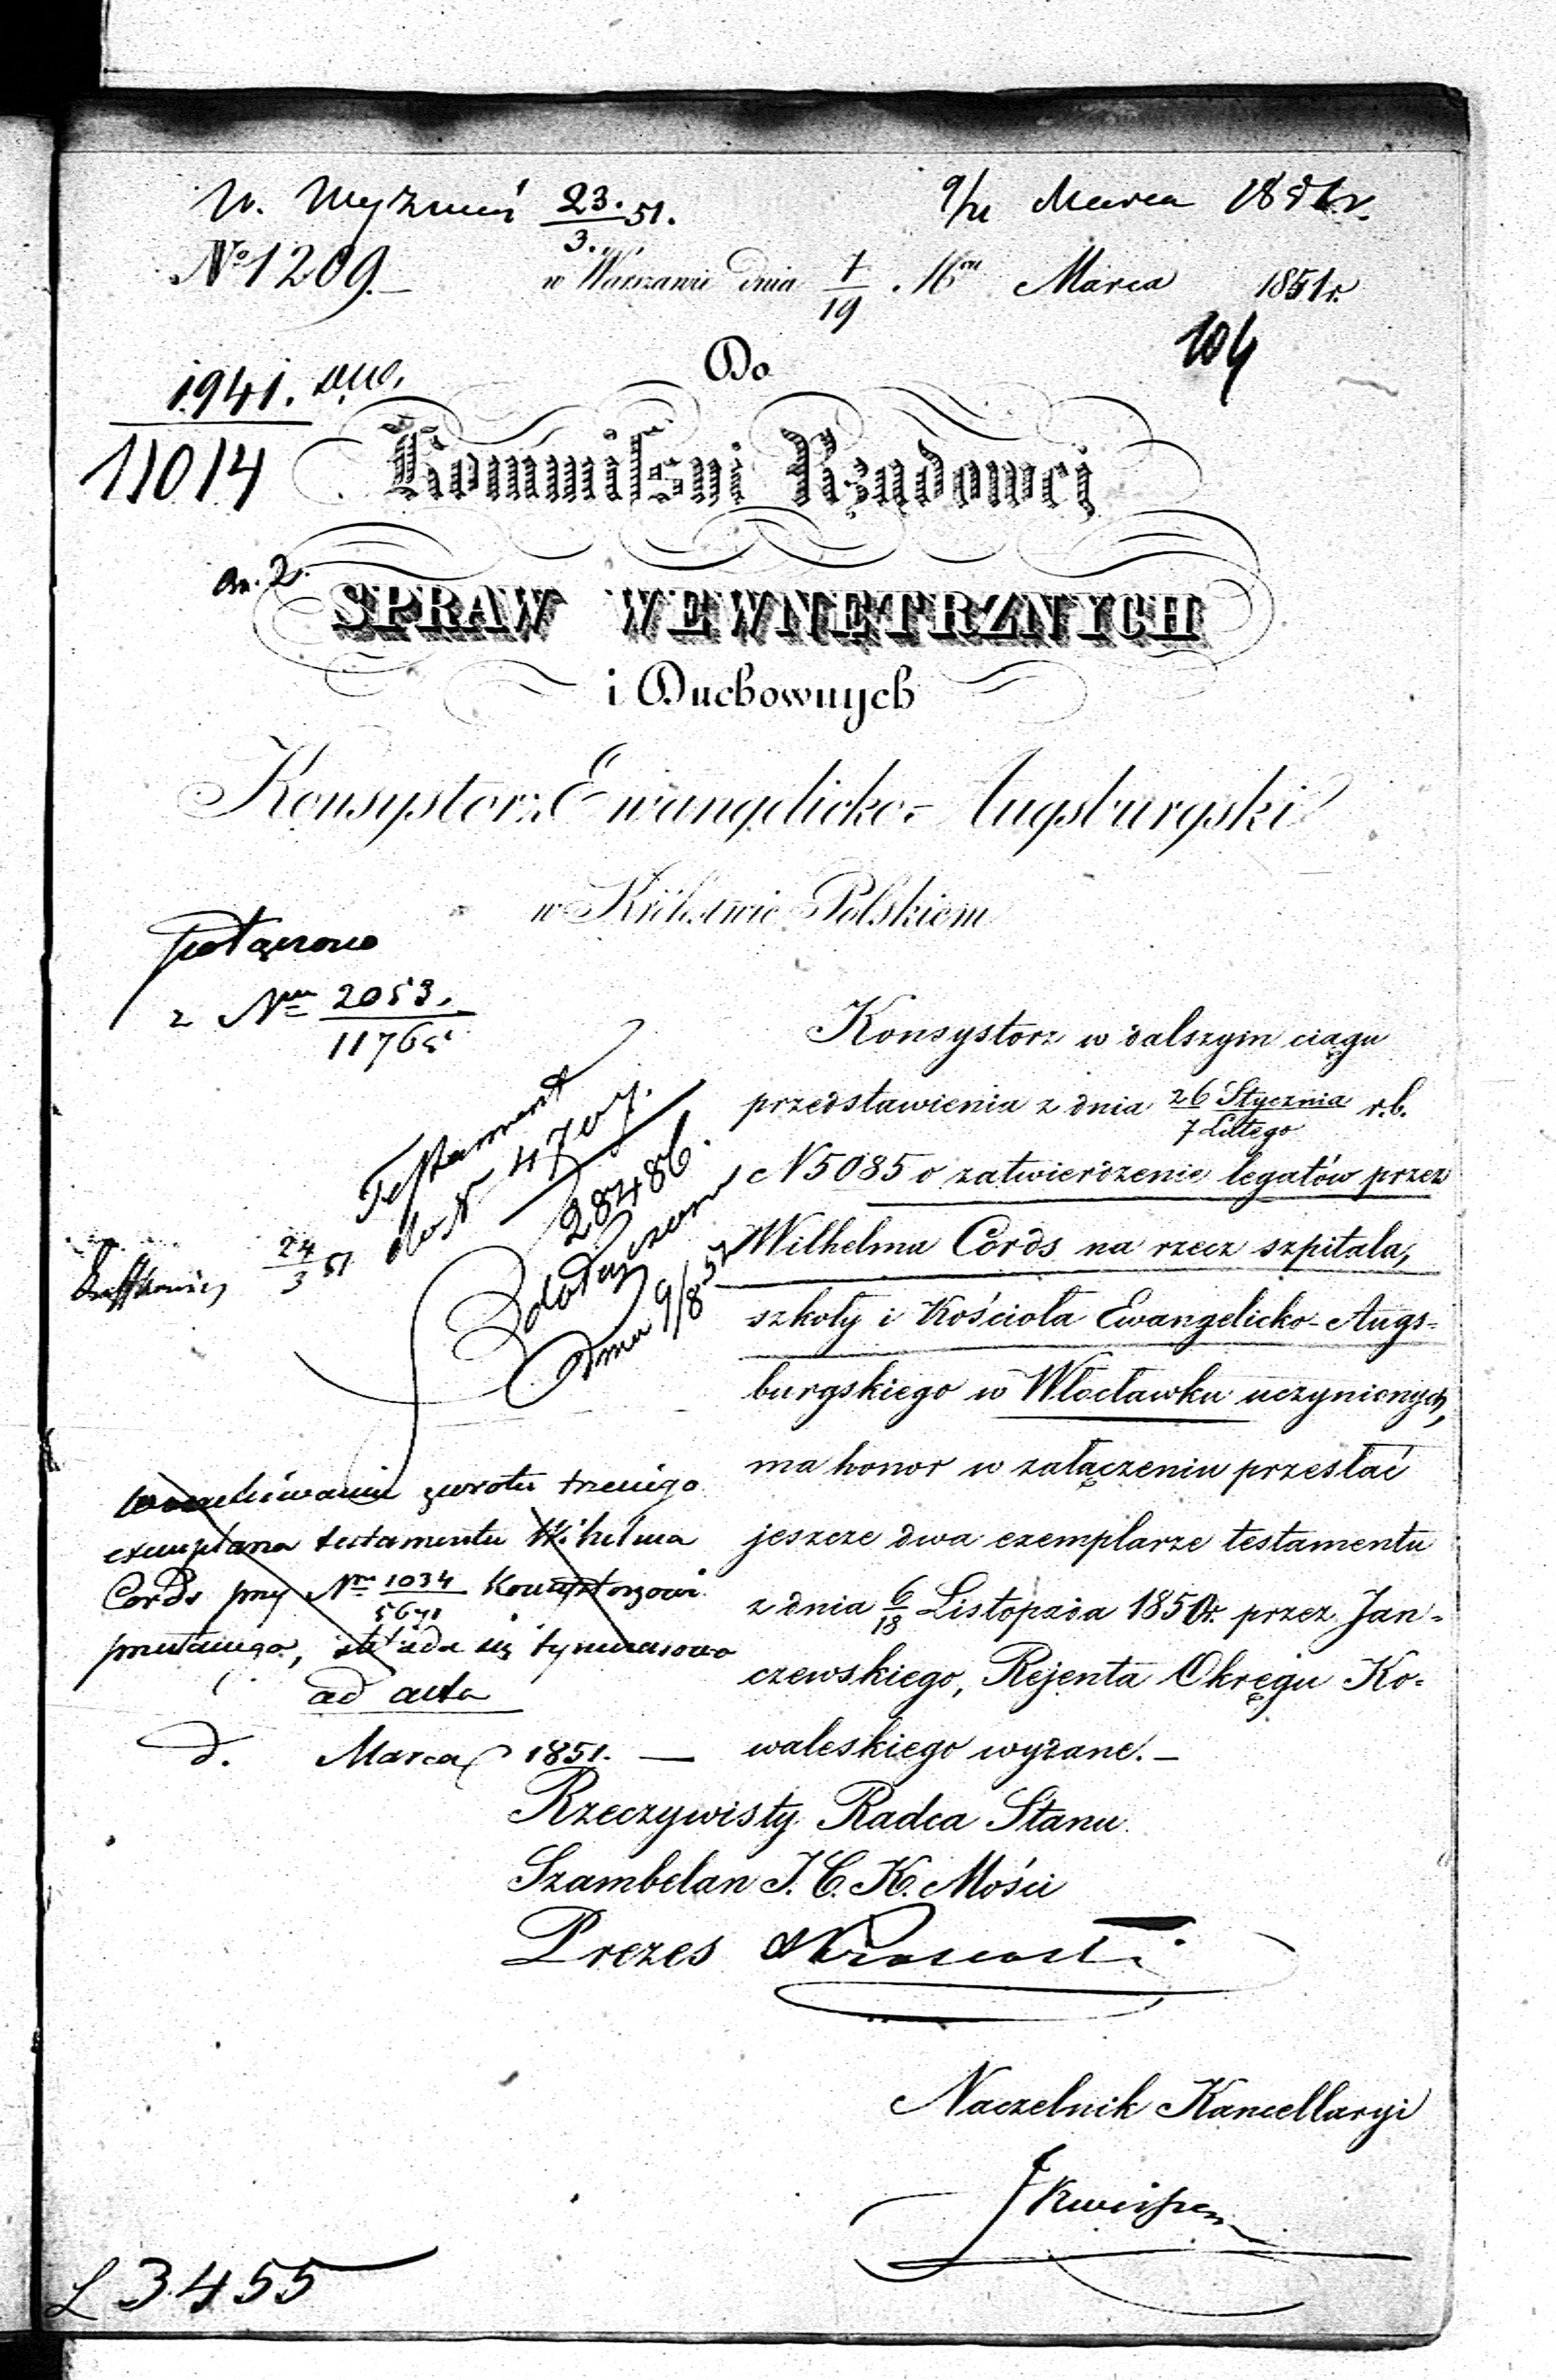 W. Wyznań 23./3. 51.
9/21 Marca 1851 r.
No 1209.
w Warszawie dnia 7/19 Mca Marca 1851 r.
104
Do
1941.
11014
Kommissyi Rządowej
an. 2.
SPRAW WEWNĘTRZNYCH
i Duchownych
Konsystorz Ewangelicko-Augsburgski
w Królestwie Polskiem
z Nrem 2053./11765
Konsystorz w dalszym ciągu
przedstawienia z dnia 26 Stycznia/7 Lutego r.b.
N 5085 o zatwierdzenie legatów przez
Wilhelma Cords na rzecz szpitala,
szkoły i Kościoła Ewangelicko-Augs-
burgskiego w Włocławku uczynionych,
ma honor w załączeniu przesłać
jeszcze dwa exemplarze testamentu
z dnia 6/18 Listopada 1850 r. przez Jan-
czewskiego, Rejenta Okręgu Ko-
waleskiego wydane.-
Testament
do N 4707.
28486.
dołączono
dnia 9/8 52
24/3 51
zwrotu trzeciego
exemplarza testamentu Wilhelma
Cords przy Nrem 1034/5671 Konsystorzowi
składa się tymczasowo
ad acta
d. Marca 1851. —
Rzeczywisty Radca Stanu
Szambelan J. C. K. Mości
Prezes
Naczelnik Kancellaryi
L 3455